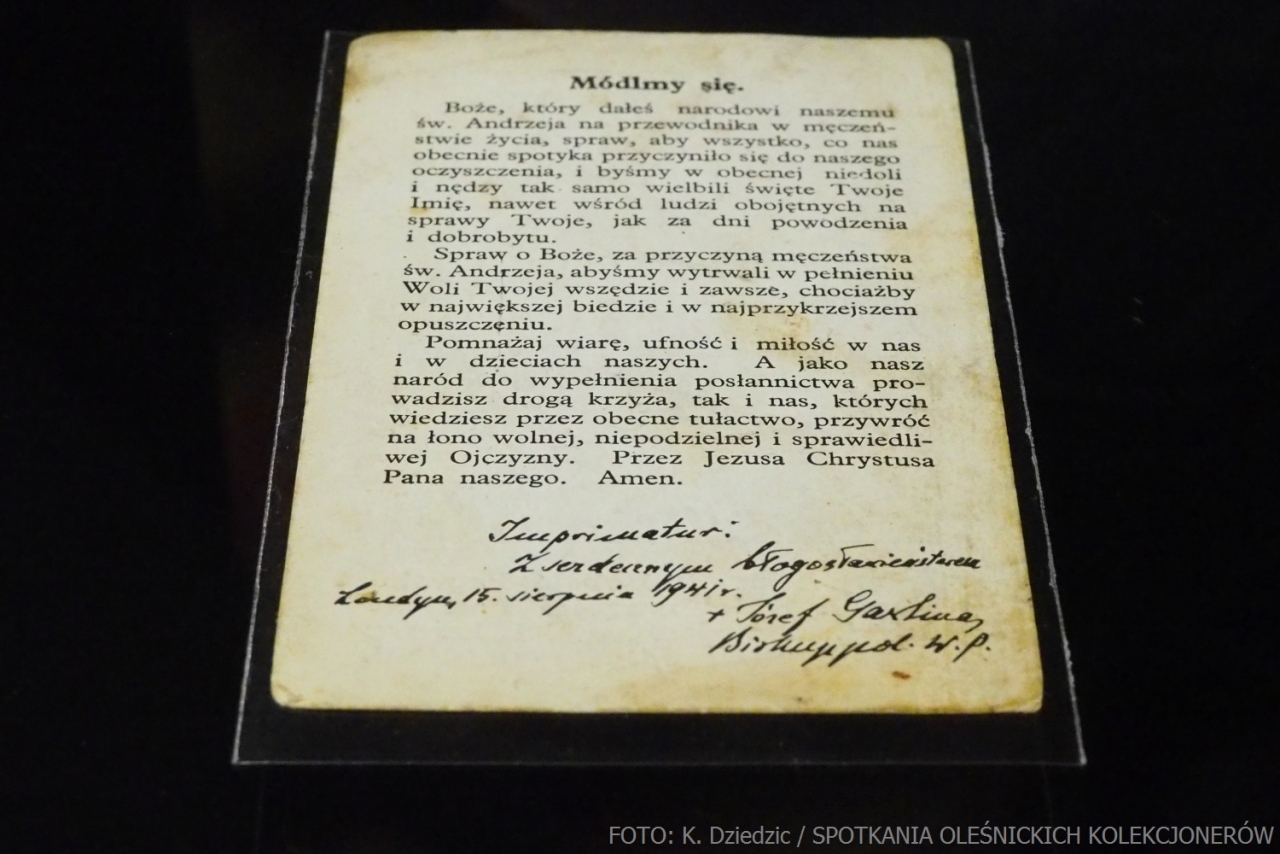 Módlmy się.
Boże, który dałeś narodowi naszemu
św. Andrzeja na przewodnika w męczeń-
stwie życia, spraw, aby wszystko, co nas
obecnie spotyka przyczyniło się do naszego
oczyszczenia, i byśmy w obecnej niedoli
i nędzy tak samo wielbili święte Twoje
Imię, nawet wśród ludzi obojętnych na
sprawy Twoje, jak za dni powodzenia
i dobrobytu.
Spraw o Boże, za przyczyną męczeństwa
św. Andrzeja, abyśmy wytrwali w pełnieniu
Woli Twojej wszędzie i zawsze, chociażby
w największej biedzie i w najprzykrzejszem
opuszczęniu.
Pomnażaj wiarę, ufność i miłość w nas
i w dzieciach naszych. A jako nasz
naród do wypełnienia posłannictwa pro-
wadzisz drogą krzyża, tak i nas, których
wiedziesz przez obecne tułactwo, przywróć
na łono wolnej, niepodzielnej i sprawiedli-
wej Ojczyzny. Przez Jezusa Chrystusa
Pana naszego. Amen.
Imprimatur:
Z serdecznym błogosławieństwem
Londyn, 15. sierpnia 1941 r.
+ Józef Gawlina,
Biskup pol. W. P.
FOTO: K. Dziedzic / SPOTKANIA OLEŚNICKICH KOLEKCJONERÓW